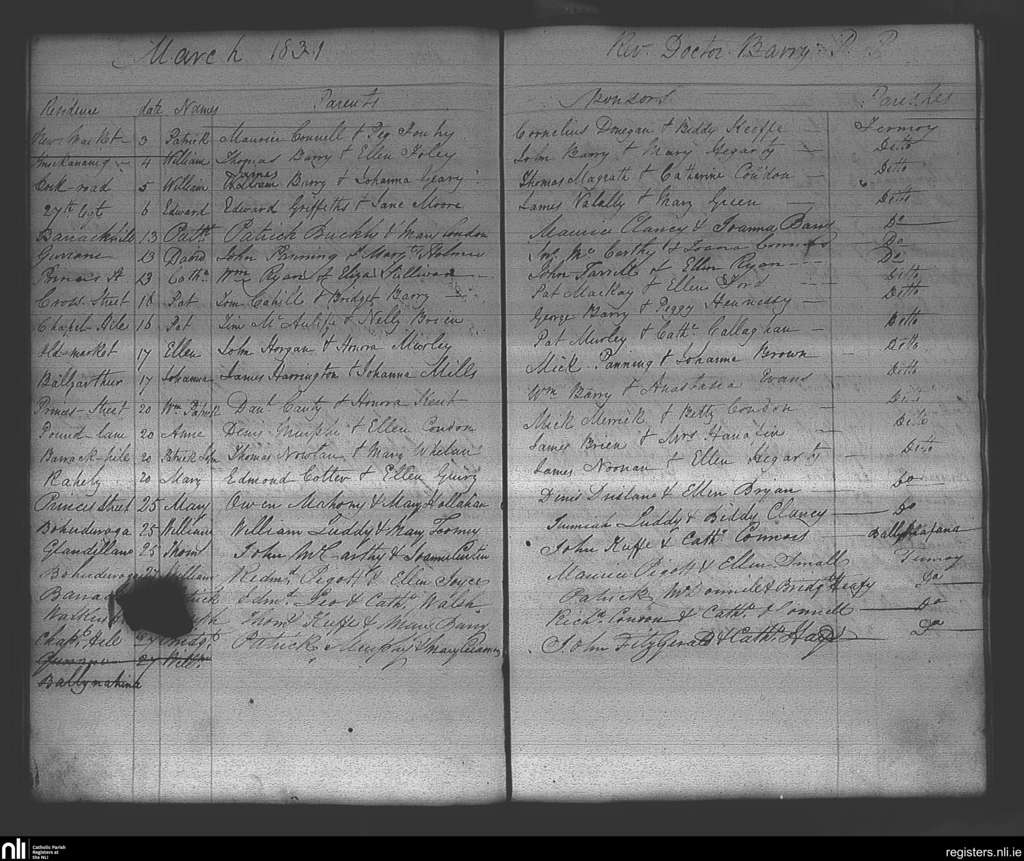 March 1831 Rev. Doctor Barry P. P.
Residence date Names Parents Sponsors Parishes
New Market 3 Patrick Maurice Connell & Peg Touhy Cornelius Donegan & Biddy Keeffe Fermoy
4 William Thomas Barry & Ellen Foley John Barry & Mary Hegarty Ditto
Cork road 5 William James Barry & Johanna Geary Thomas Magrath & Catherine Condon Ditto
27th 6 Edward Edward Griffeths & Jane Moore James & Mary Green Ditto
Barrackhill 13 Patk Patrick Buckly & Mary London Maurice Clancy & Joanna Barry Do
Gurrane 13 David John Panning & Mary Holmes Jno. Mc Carthy & Joana Connors Do
Princes St 13 Cathe Wm Ryan & Eliza Sullivan John Farrell & Ellen Ryan Do
Cross Street 16 Pat Tom Cahill & Bridget Barry Pat Mackay & Ellen Ford Ditto
Chapel Hile 16 Pat Tim Mc Aulife & Nelly Brien George Barry & Peggy Hennessy Ditto
Old market 17 Ellen John Horgan & Honora Murley Pat Murley & Cathe Callaghan Ditto
Ballyarthur 17 Johanna James Harrington & Johanna Mills Mick Panning & Johanna Brown Ditto
Princes Street 20 Wm Patrick Danl Canty & Honora Kent Wm Barry & Anastasia Evans Ditto
Pound Lane 20 Anne Denis Murphy & Ellen Condon Mick Merrick & Betty Condon Ditto
Barrack hile 20 Patrick John Thomas Nowlan & Mary Whelan James Brien & Mrs Hanafin Ditto
Rahely 20 Mary Edmond Cotter & Ellen James Noonan & Ellen Hegarty Ditto
Princes Street 25 Mary Owen Mahony & Mary Hollahan Denis & Ellen Bryan Do
25 William William Luddy & Mary Toomy Jeremiah Luddy & Biddy Clancy Do
25 Thoms John McCarthy & Joanna Curtin John Keffe & Cathe Connors
27 William Redmd Pigott & Ellen Joyce Maurice Pigott & Ellen Small Fermoy
Edmd Leo & Cathe Walsh Patrick McDonnell & Bridgt Heafy Do
Thoms Keffe & Mary Barry Richd Condon & Cathe Do
Chapl Hill 27 Bridgt Patrick Murphy & Mary John FitzGerald & Cathe Hays Do
27 Willm
Ballynahina
nli Catholic Parish Registers at the NLI registers.nli.ie